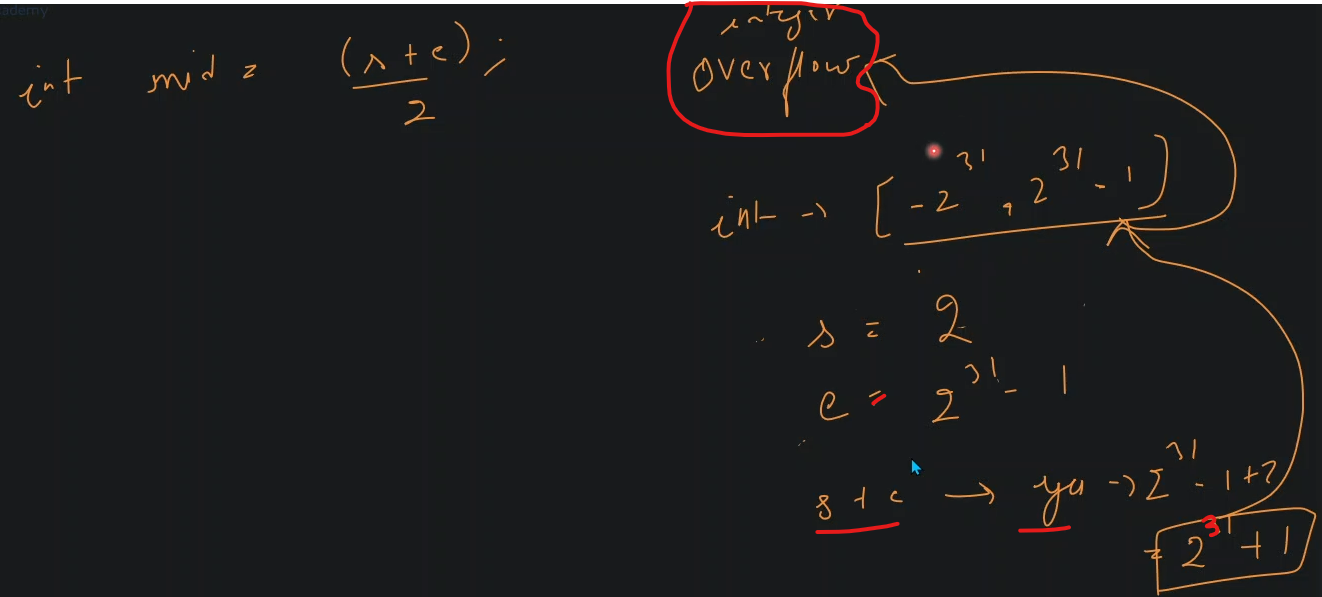 ademy
int mid = (s+e);
2
integer
Overflow
int → [-2^31, 2^31 - 1]
s = 2
e = 2^31 - 1
s + e → yes → 2^31 - 1 + 2
= 2^31 + 1